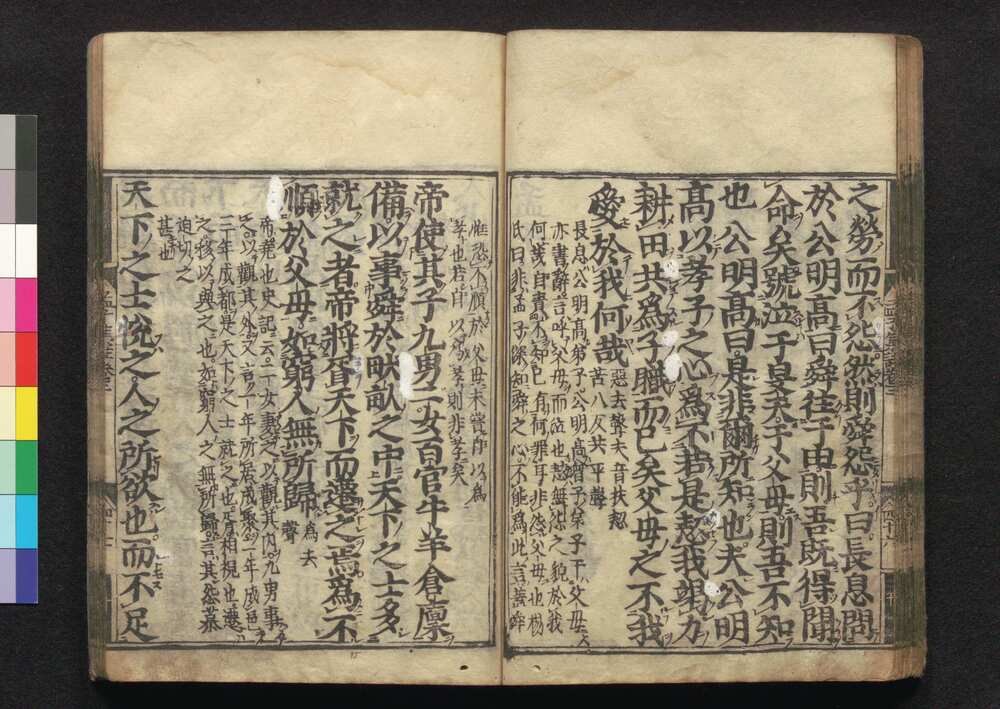 之勞而不怨然則舜怨乎曰長息問
於公明髙曰舜往于田則吾既得聞
命矣號泣于旻天于父母則吾不知
也公明髙曰是非爾所知也夫公明
髙以孝子之心爲不若是恝我竭力
耕田共爲子職而已矣父母之不我
愛於我何哉
惡去聲夫音扶恝
苦八反共平聲
長息公明髙弟子公明髙曾子弟子于父母
亦書辭言呼父母而泣也恝無愁之貌於我
何哉自責不知已有何罪耳非怨父母也楊
氏曰非孟子深知舜之心不能爲此言蓋舜
惟恐不順於父母未嘗自以爲
孝也若自以爲孝則非孝矣
帝使其子九男二女百官牛羊倉廩
備以事舜於畎畝之中天下之士多
就之者帝將胥天下而遷之焉爲不
順於父母如窮人無所歸
爲去
聲
帝堯也史記云二女妻之以觀其内九男事
之以觀其外又言一年所居成聚二年成邑
三年成都是天下之士就之也胥相視也遷
之移以與之也如窮人之無所歸言其怨慕
迫切之
甚也
天下之士悅之人之所欲也而不足